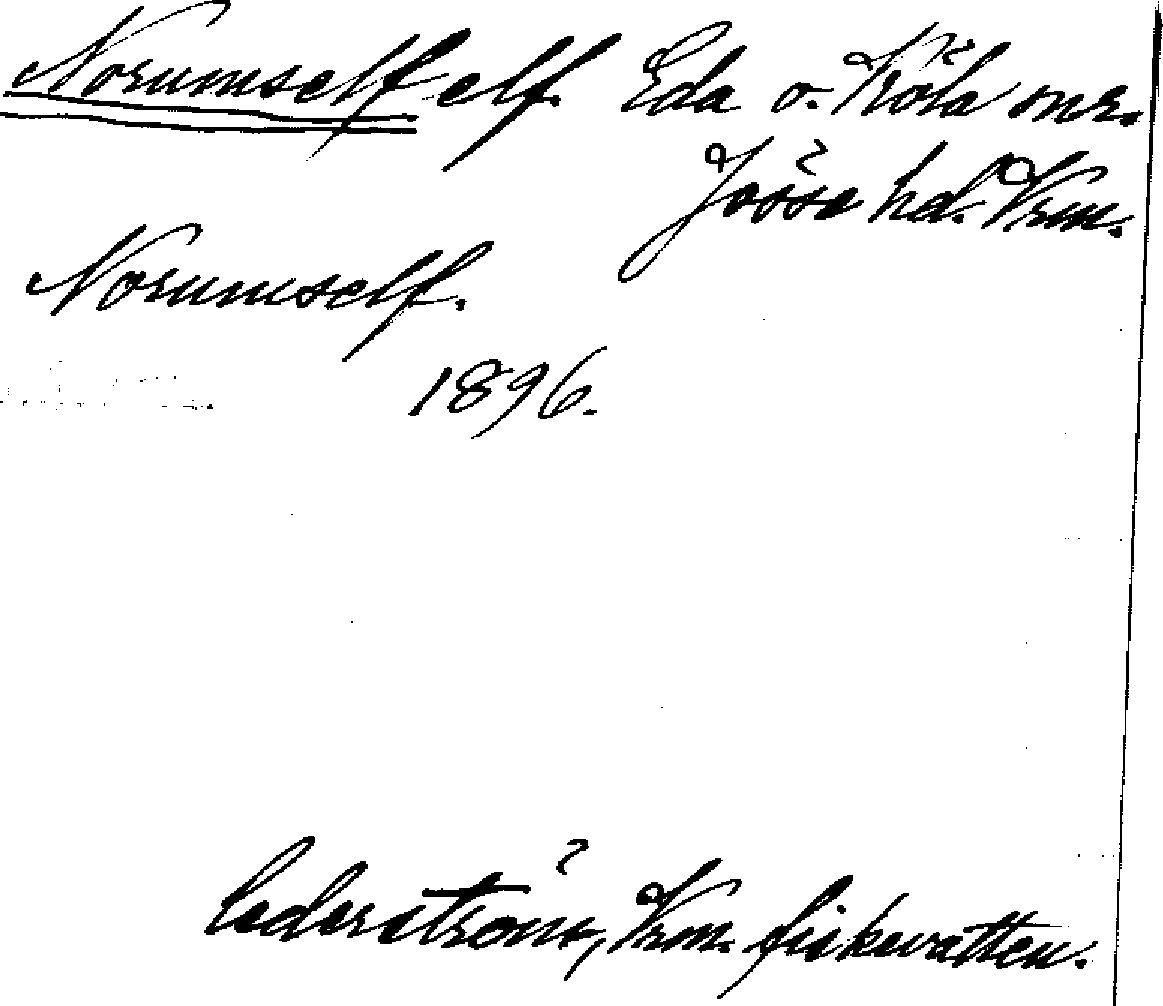 Norumself elf. Eda o. Köla snr.
Jösse hd. Vrm.
Norumself.
1896.
Cederström, Vrm. fiskevatten.